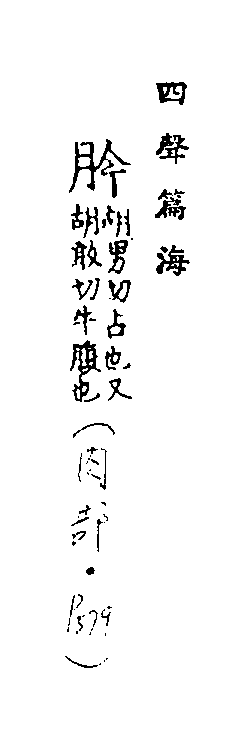 四聲篇海
肣胡男切占也又
胡敢切牛腹也
(肉部·P579)